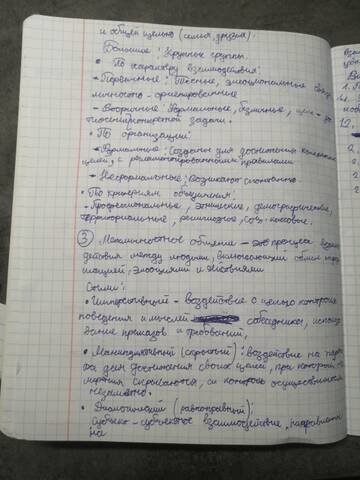 и общей целью (семья, друзья);
Большие: Крупные группы.
• По характеру взаимодействия:
- Первичные: Тесные, эмоциональные связи
личностно-ориентированные
- Вторичные: Формальные, безличные, цель - до
стижение конкретной задачи.
• По организации:
- Формальные: Созданы для достижения конкретных
целей, с регламентированными правилами
- Неформальные: Возникают спонтанно
• По критериям общения:
- Профессиональные, этнические, демографические,
территориальные, религиозные, соц-классовые.
3 Межличностное общение - это процесс взаимо
действия между людьми, включающий обмен инфор
мацией, эмоциями и действиями
Стили:
• Императивный - Воздействие с целью контроля
поведения и мыслей собеседника, использо
вание приказов и требований,
• Манипулятивный (скрытый): воздействие на парт
ра для достижения своих целей, при котором на
мерения скрываются, а контроль осуществляется
незаметно.
• Диалогический (равноправный):
субъект-субъектное взаимодействие, направленн
на